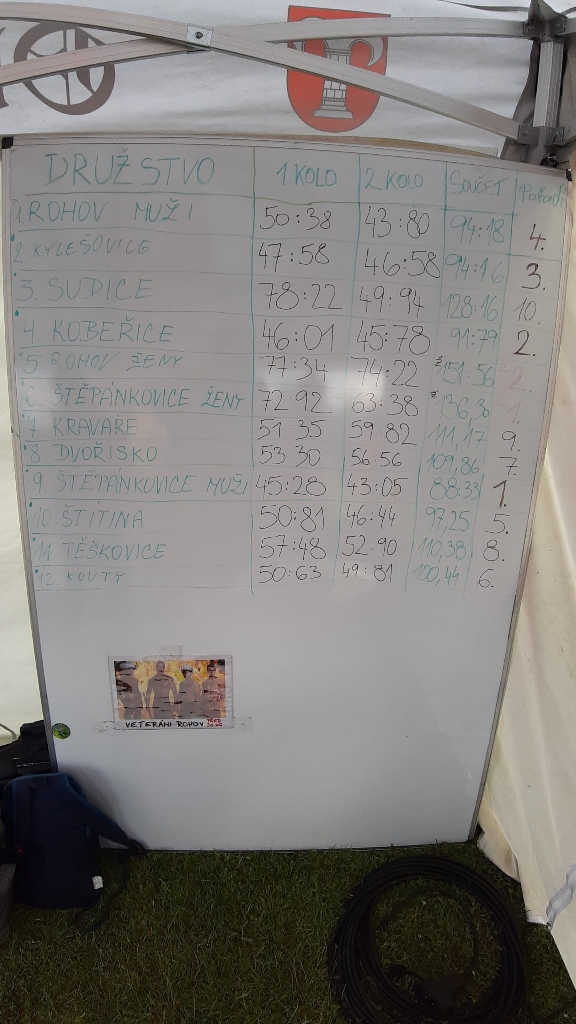 DRUŽSTVO 1 KOLO 2 KOLO SOUČET Pořadí
1. ROHOV MUŽI 50:38 43:80 94:18 4.
2 KYLEŠOVICE 47:58 46:58 94:16 3.
3. SUDICE 78:22 49:94 128:16 10.
4 KOBEŘICE 46:01 45:78 91:79 2.
5 ROHOV ŽENY 77:34 74:22 ž151:56 2.
6. ŠTĚPÁNKOVICE ŽENY 72 92 63:38 ž136,3 1.
7 KRAVAŘE 51 35 59:82 111,17 9.
8 DVOŘISKO 53 30 56:56 109,86 7.
9 ŠTĚPÁNKOVICE MUŽI 45:28 43:05 88:33 1.
10. ŠTÍTINA 50:81 46:44 97,25 5.
11 TĚŠKOVICE 57:48 52:90 110,38 8.
12. KOUTY 50:63 49:81 100,44 6.
VETERÁNI ROHOV PŘED